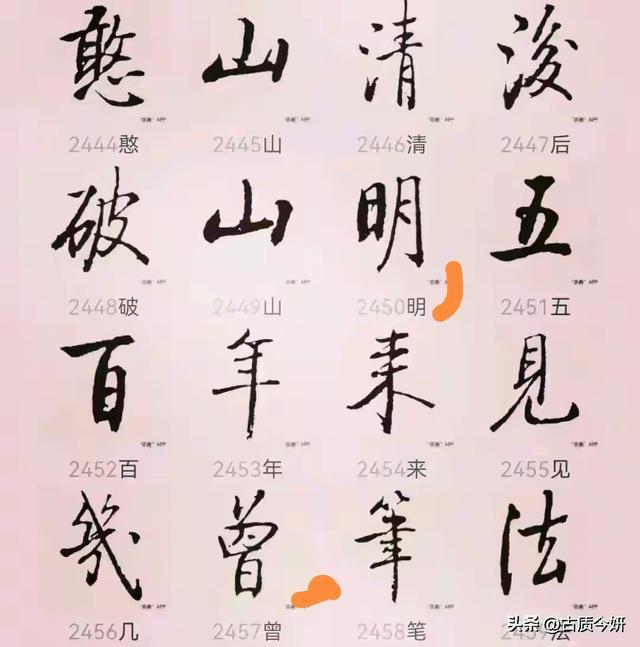 憨 山 清 後
2444憨 2445山 2446清 2447后
破 山 明 五
2448破 2449山 2450明 2451五
百 年 来 見
2452百 2453年 2454来 2455见
幾 曾 筆 法
2456几 2457曾 2458笔 2459法
头条 @古质今妍